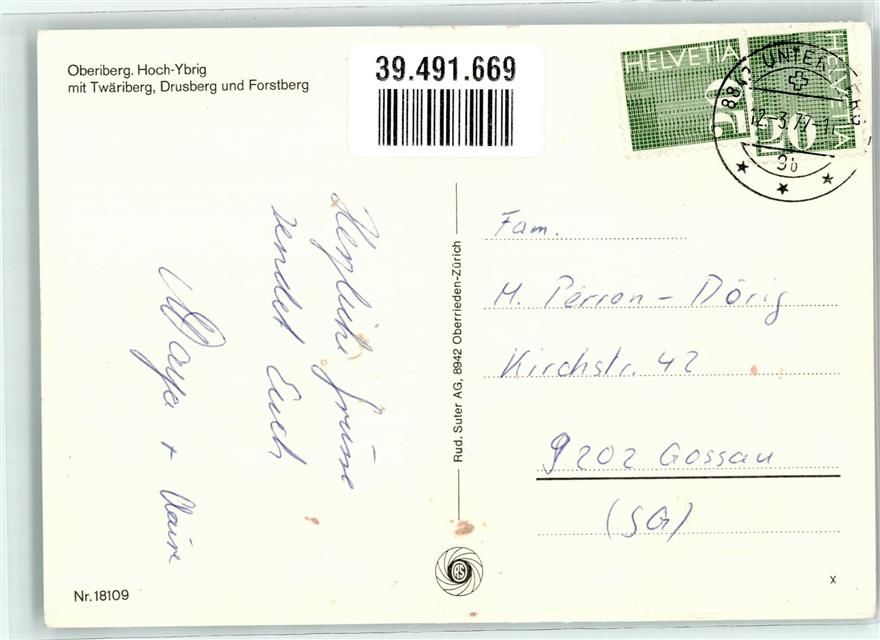 Oberiberg, Hoch-Ybrig
mit Twäriberg, Drusberg und Forstberg
39.491.669
HELVETIA
20
HELVETIA
20
8842 UNTER
12.-3.77-1
9b
Herzliche Grüsse
sendet Euch
Maya + Claire
Rud. Suter AG, 8942 Oberrieden-Zürich
Fam.
M. Perron-Dörig
Kirchstr. 42
9202 Gossau
(SG)
Nr. 18109
X